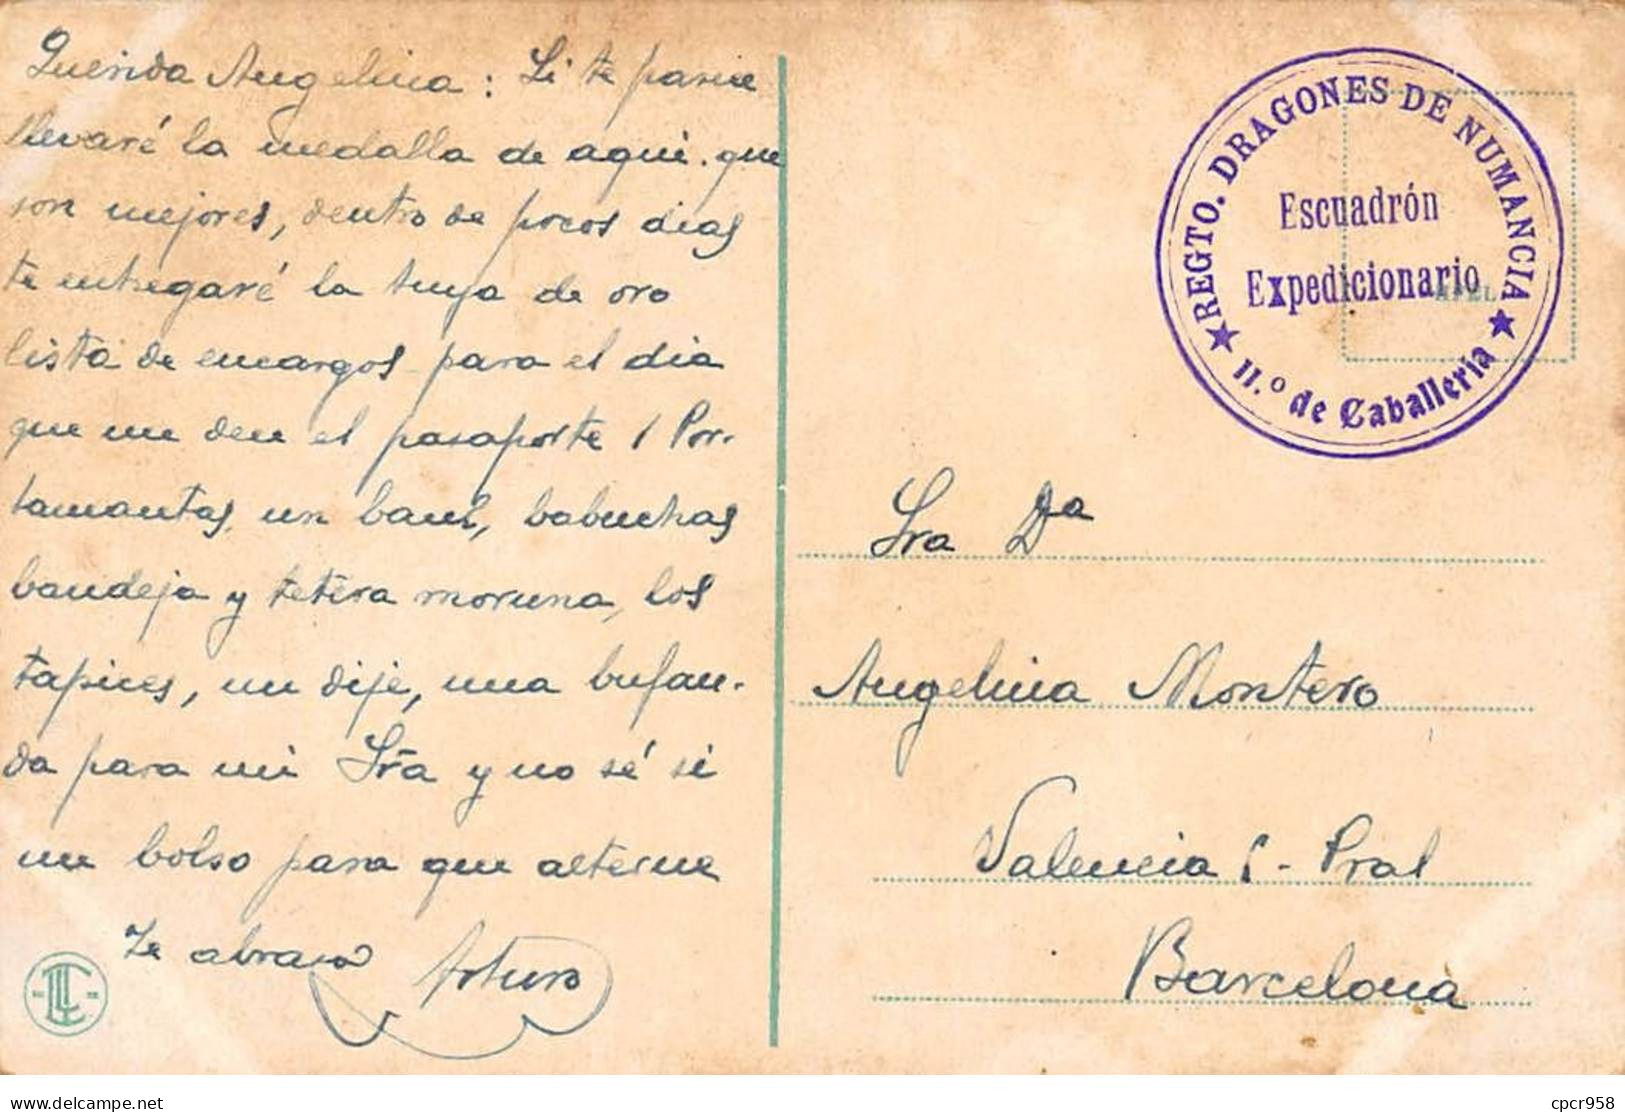 Querida Angelina: Si te parece
llevaré la medalla de aqui. que
son mejores, dentro de pocos dias
te entregaré la tuya de oro
lista de encargos para el dia
que me den el pasaporte 1 Por-
tamantas, un baul, babuchas
bandeja y tetera moruna, los
tapices, un dije, una bufan-
da para mi Sra y no sé si
un bolso para que alterne
Te abraza Arturo
REGTO. DRAGONES DE NUMANCIA
Escuadrón
Expedicionario
11.º de Caballeria
Sra Dª
Angelina Montero
Valencia - Pral
Barcelona
delcampe.net
cpcr958